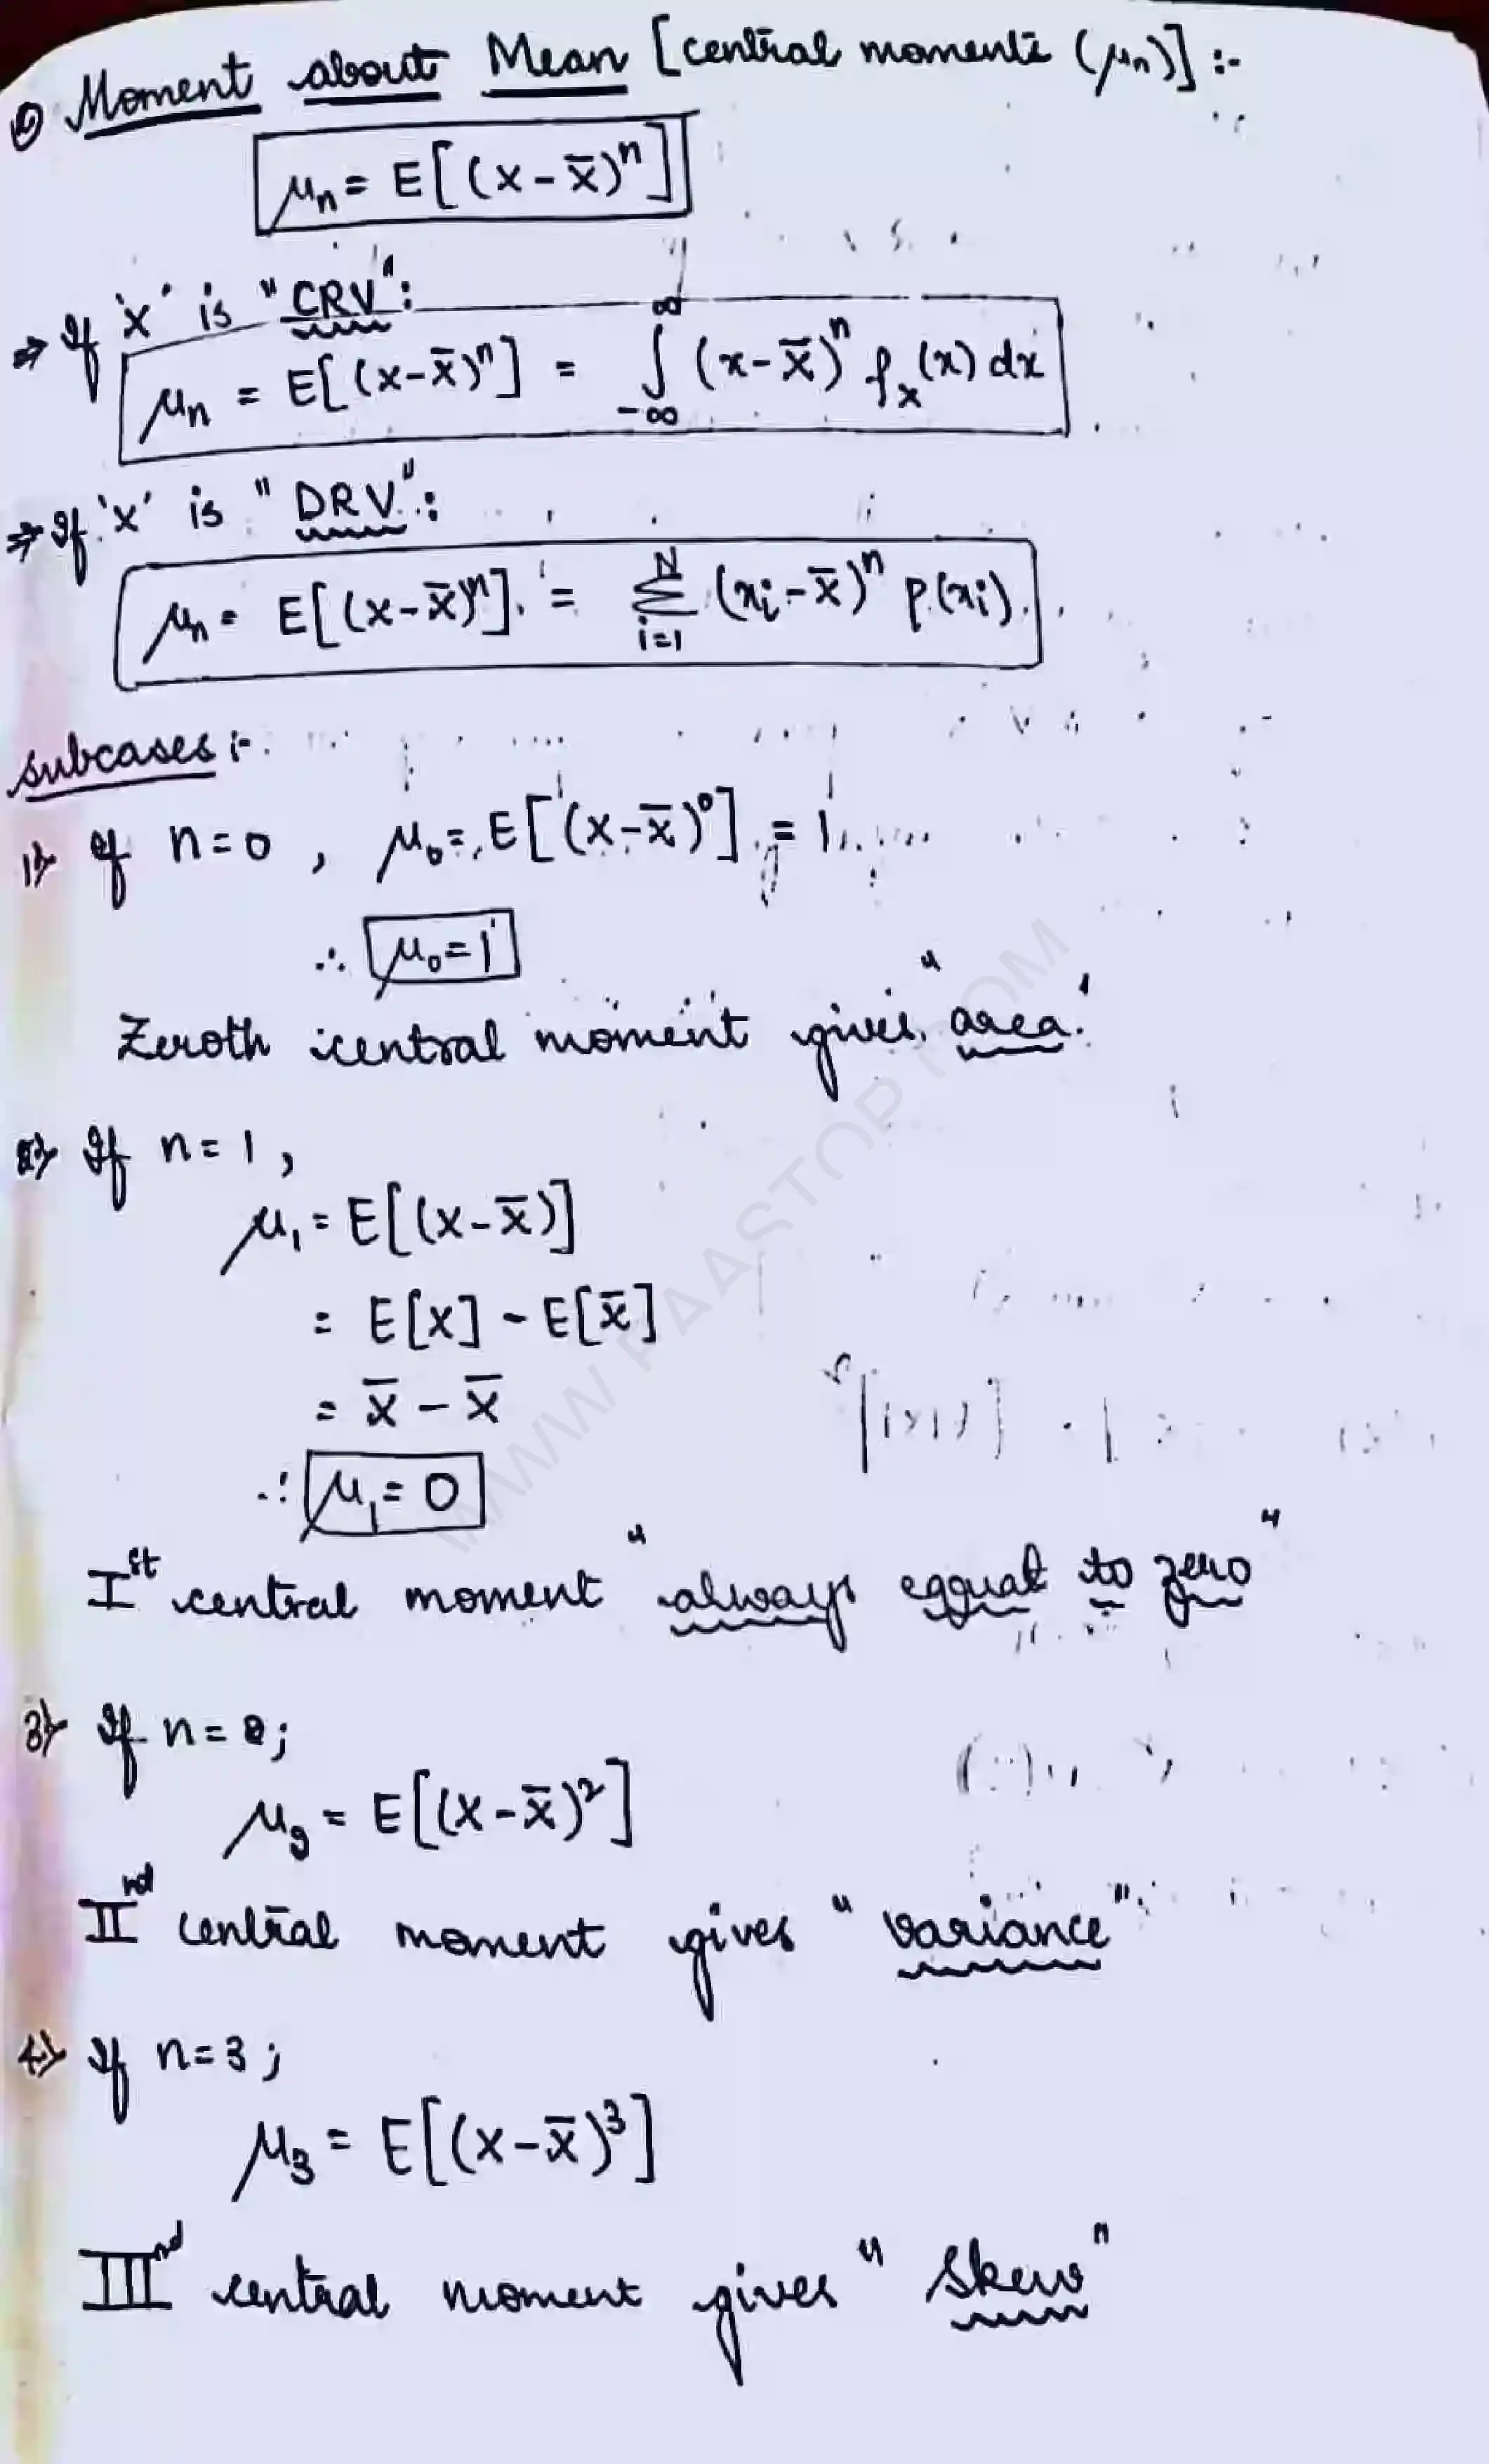 Moment about Mean [central moments (μn)] :-
μn = E[(x - x̄)ⁿ]
⇒ If 'x' is "CRV":
μn = E[(x-x̄)ⁿ] = ∫_{-∞}^{∞} (x-x̄)ⁿ fx(x) dx
⇒ If 'x' is "DRV":
μn = E[(x-x̄)ⁿ] = Σ_{i=1}^{N} (xi-x̄)ⁿ p(xi)
subcases :-
1) If n=0, μ₀ = E[(x-x̄)⁰] = 1
∴ μ₀=1
Zeroth central moment gives "area"
2) If n=1,
μ₁ = E[(x-x̄)]
= E[x] - E[x̄]
= x̄ - x̄
∴ μ₁= 0
Ist central moment "always equal to zero"
3) If n=2;
μ₂ = E[(x-x̄)²]
IInd central moment gives "variance"
4) If n=3;
μ₃ = E[(x-x̄)³]
IIInd central moment gives "skew"